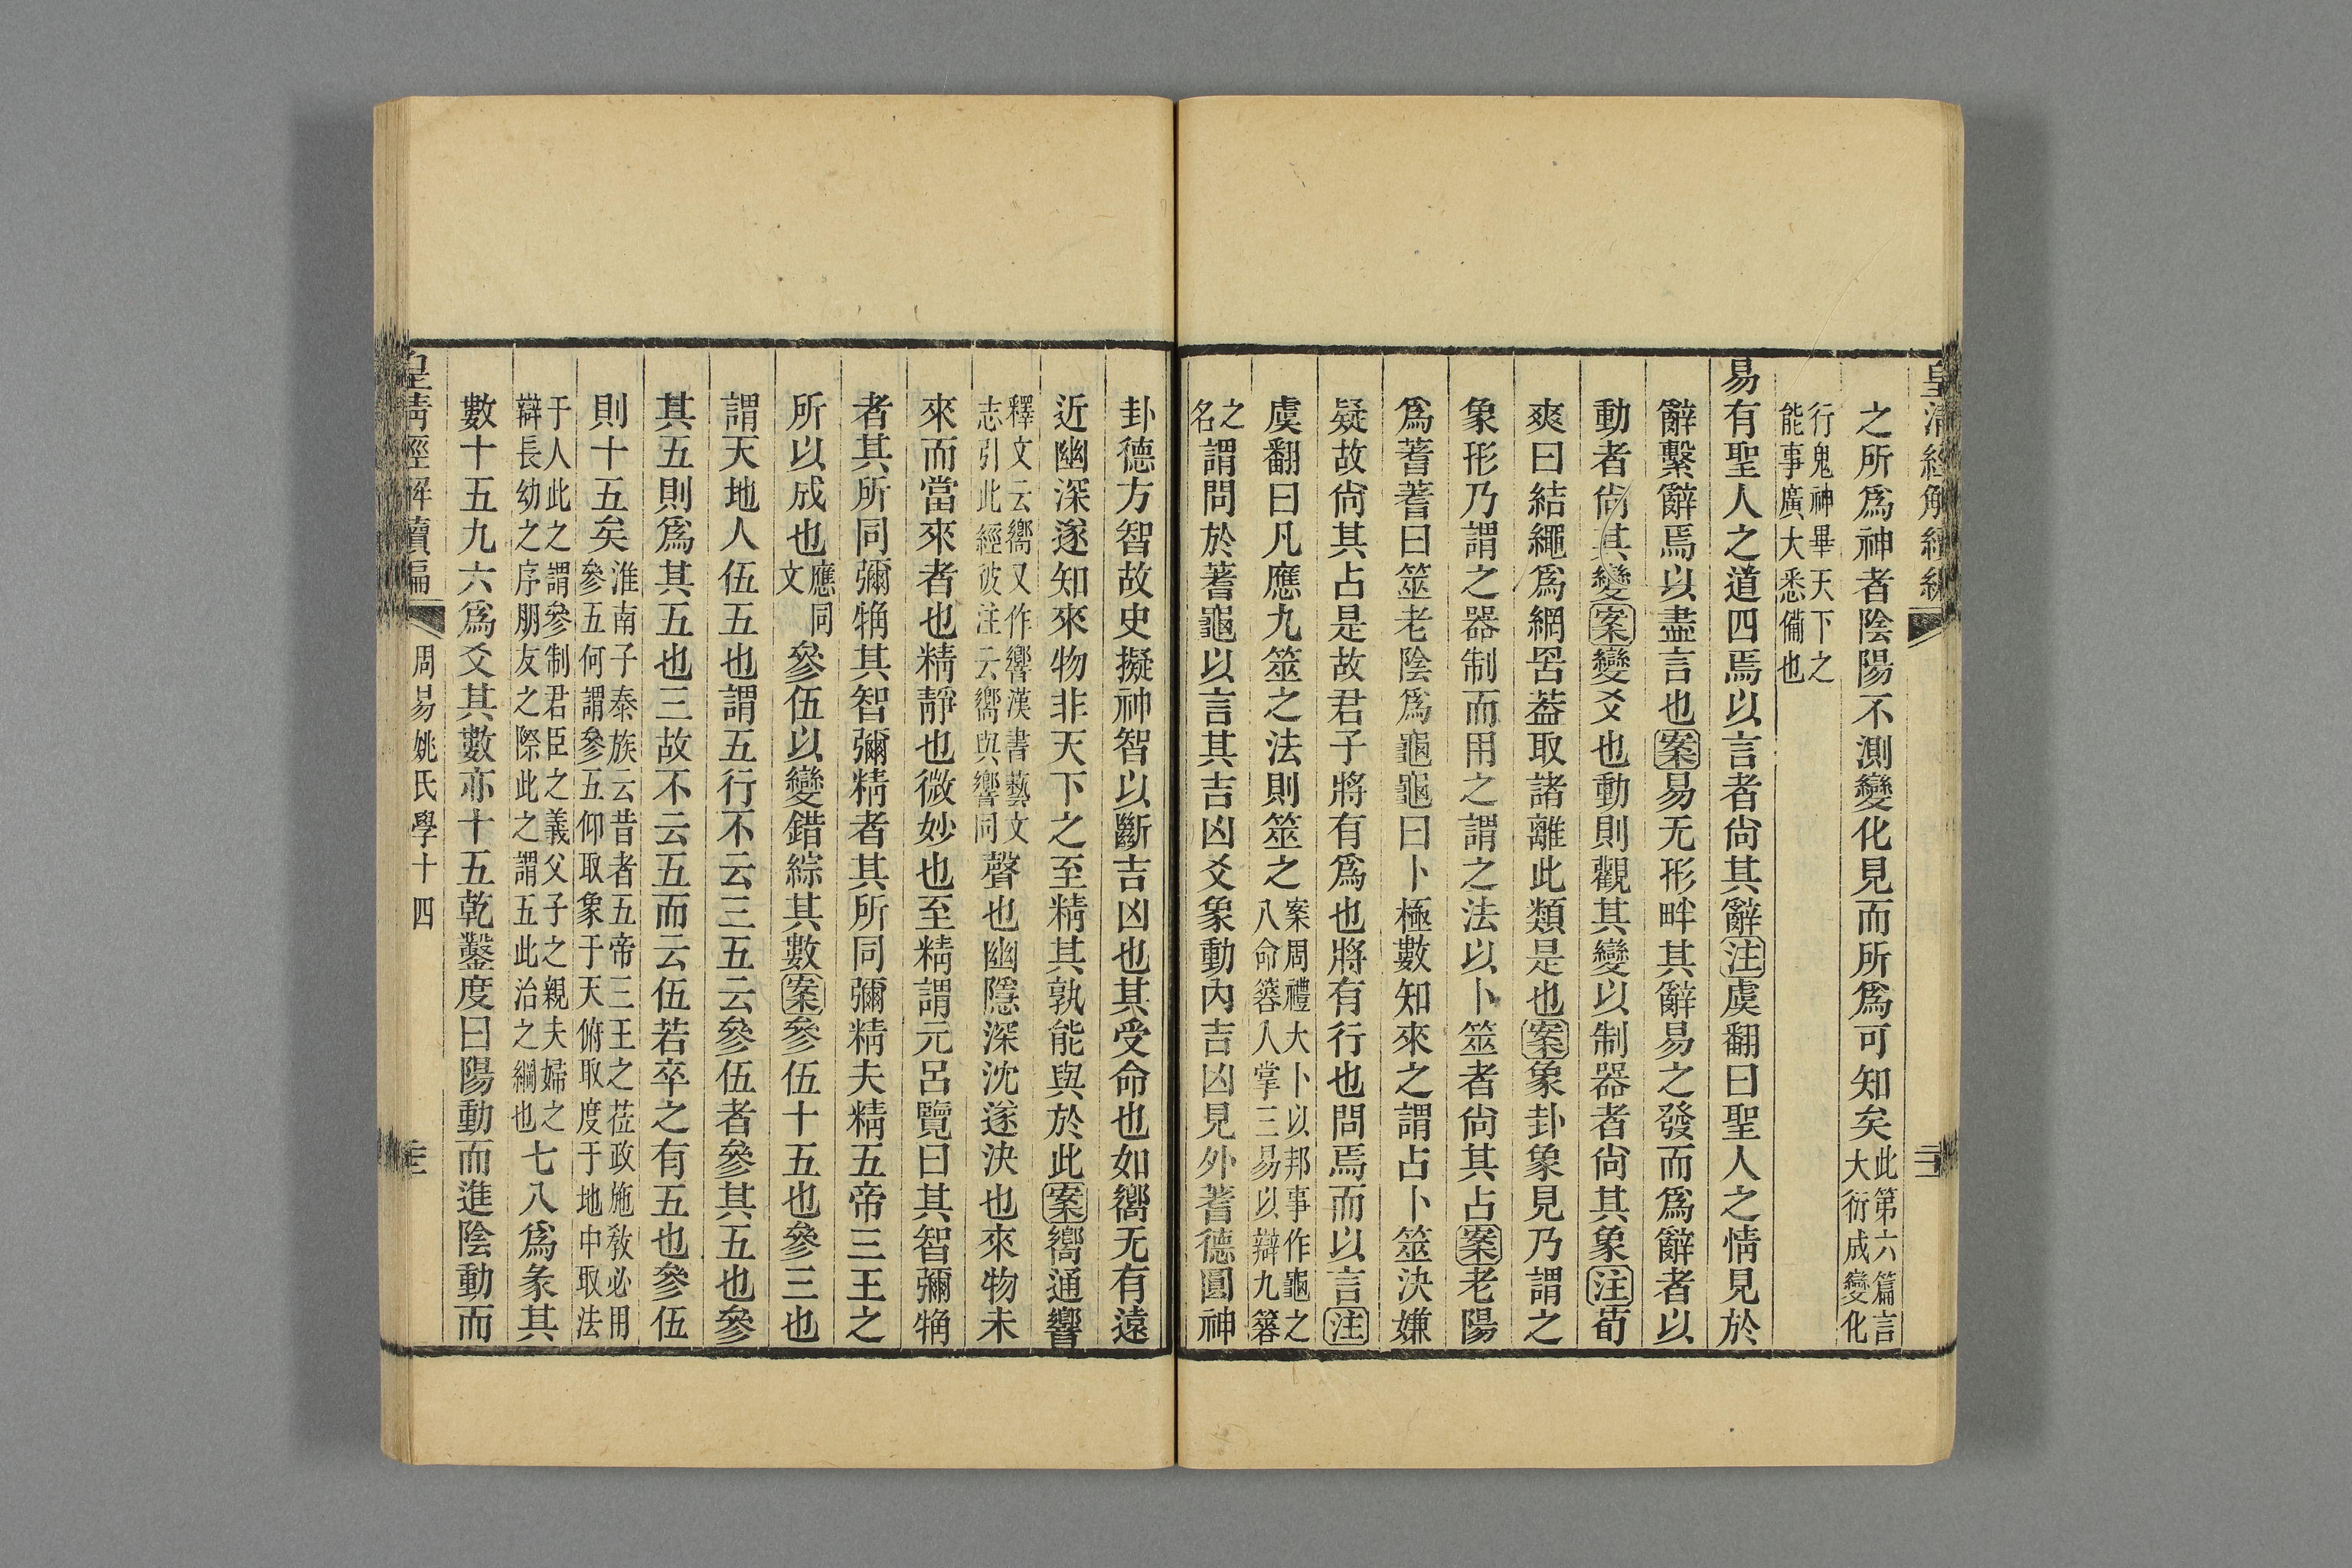 皇清經解續編
之所爲神者陰陽不測變化見而所爲可知矣此第六篇言大衍成變化
行鬼神畢天下之能事廣大悉備也
易有聖人之道四焉以言者尙其辭注虞翻曰聖人之情見於
辭繫辭焉以盡言也案易无形畔其辭易之發而爲辭者以
動者尙其變案變爻也動則觀其變以制器者尙其象注荀
爽曰結繩爲網罟葢取諸離此類是也案象卦象見乃謂之
象形乃謂之器制而用之謂之法以卜筮者尙其占案老陽
爲蓍蓍曰筮老陰爲龜龜曰卜極數知來之謂占卜筮決嫌
疑故尙其占是故君子將有爲也將有行也問焉而以言注
虞翻曰凡應九筮之法則筮之案周禮大卜以邦事作龜之八命簭人掌三易以辯九簭
之名謂問於蓍龜以言其吉凶爻象動內吉凶見外蓍德圓神
卦德方智故史擬神智以斷吉凶也其受命也如嚮无有遠
近幽深遂知來物非天下之至精其孰能與於此案嚮通響
釋文云嚮又作響漢書藝文志引此經彼注云嚮與響同聲也幽隱深沈遂決也來物未
來而當來者也精靜也微妙也至精謂元呂覽曰其智彌觕
者其所同彌觕其智彌精者其所同彌精夫精五帝三王之
所以成也應同文參伍以變錯綜其數案參伍十五也參三也
謂天地人伍五也謂五行不云三五云參伍者參其五也參
其五則爲其五也三故不云五而云伍若卒之有五也參伍
則十五矣淮南子泰族云昔者五帝三王之莅政施敎必用參五何謂參五仰取象于天俯取度于地中取法
于人此之謂參制君臣之義父子之親夫婦之辯長幼之序朋友之際此之謂五此治之綱也七八爲彖其
數十五九六爲爻其數亦十五乾鑿度曰陽動而進陰動而
皇清經解續編
周易姚氏學十四